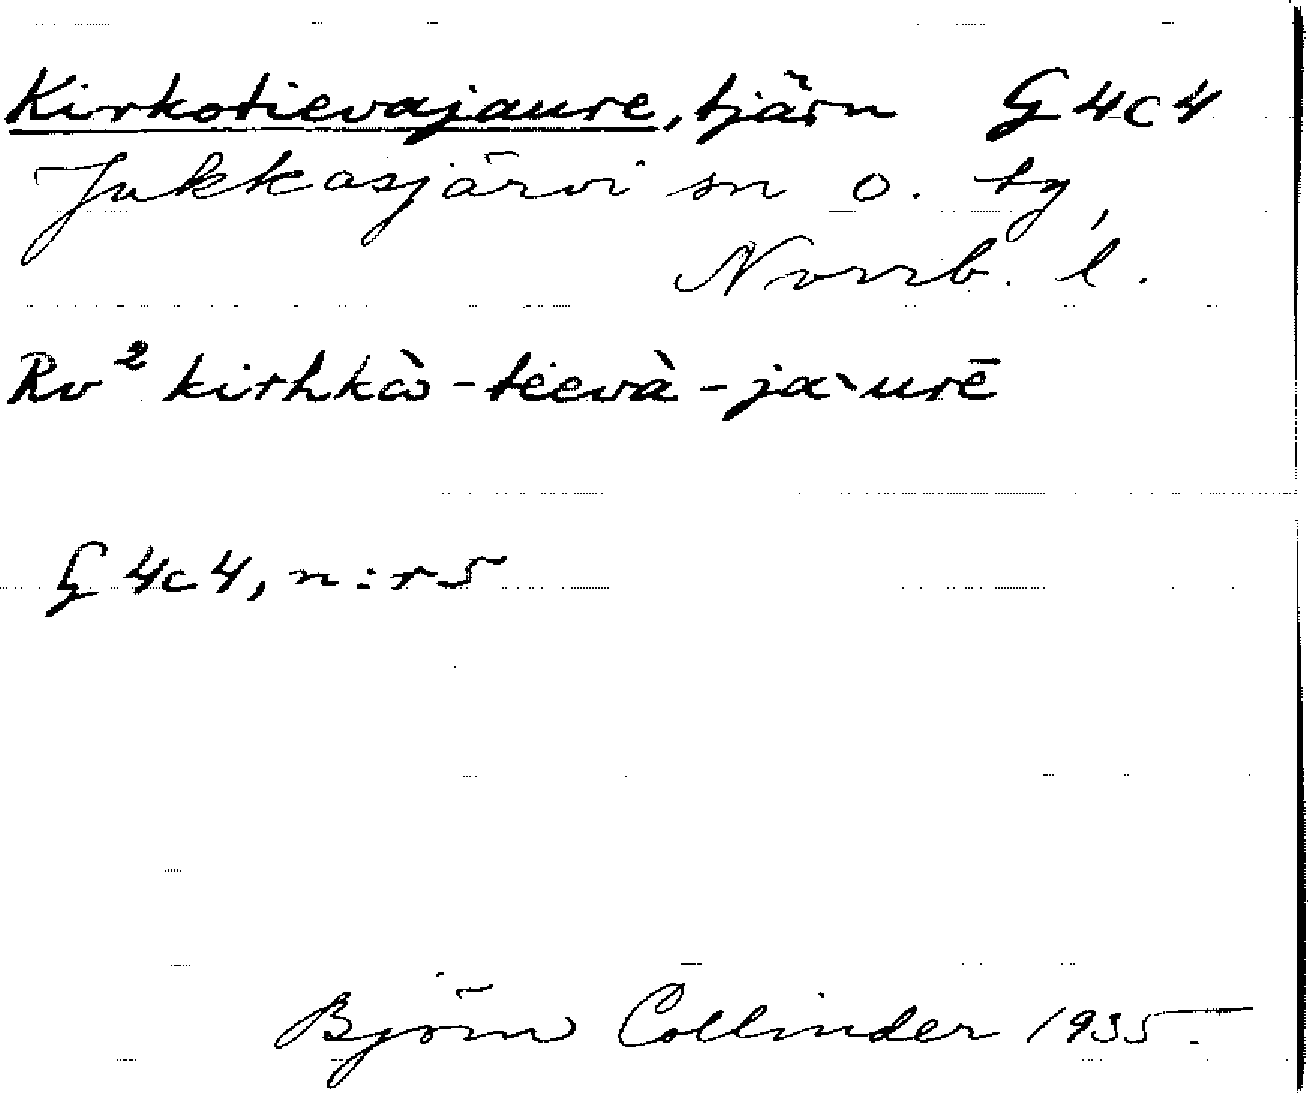 Kirkotievajaure, tjärn G4c4
Jukkasjärvi sn o. tg,
Norrb. l.
Rv² kirhkò̀-tievà-ja`urē
G4c4, n:r5
Björn Collinder 1935.